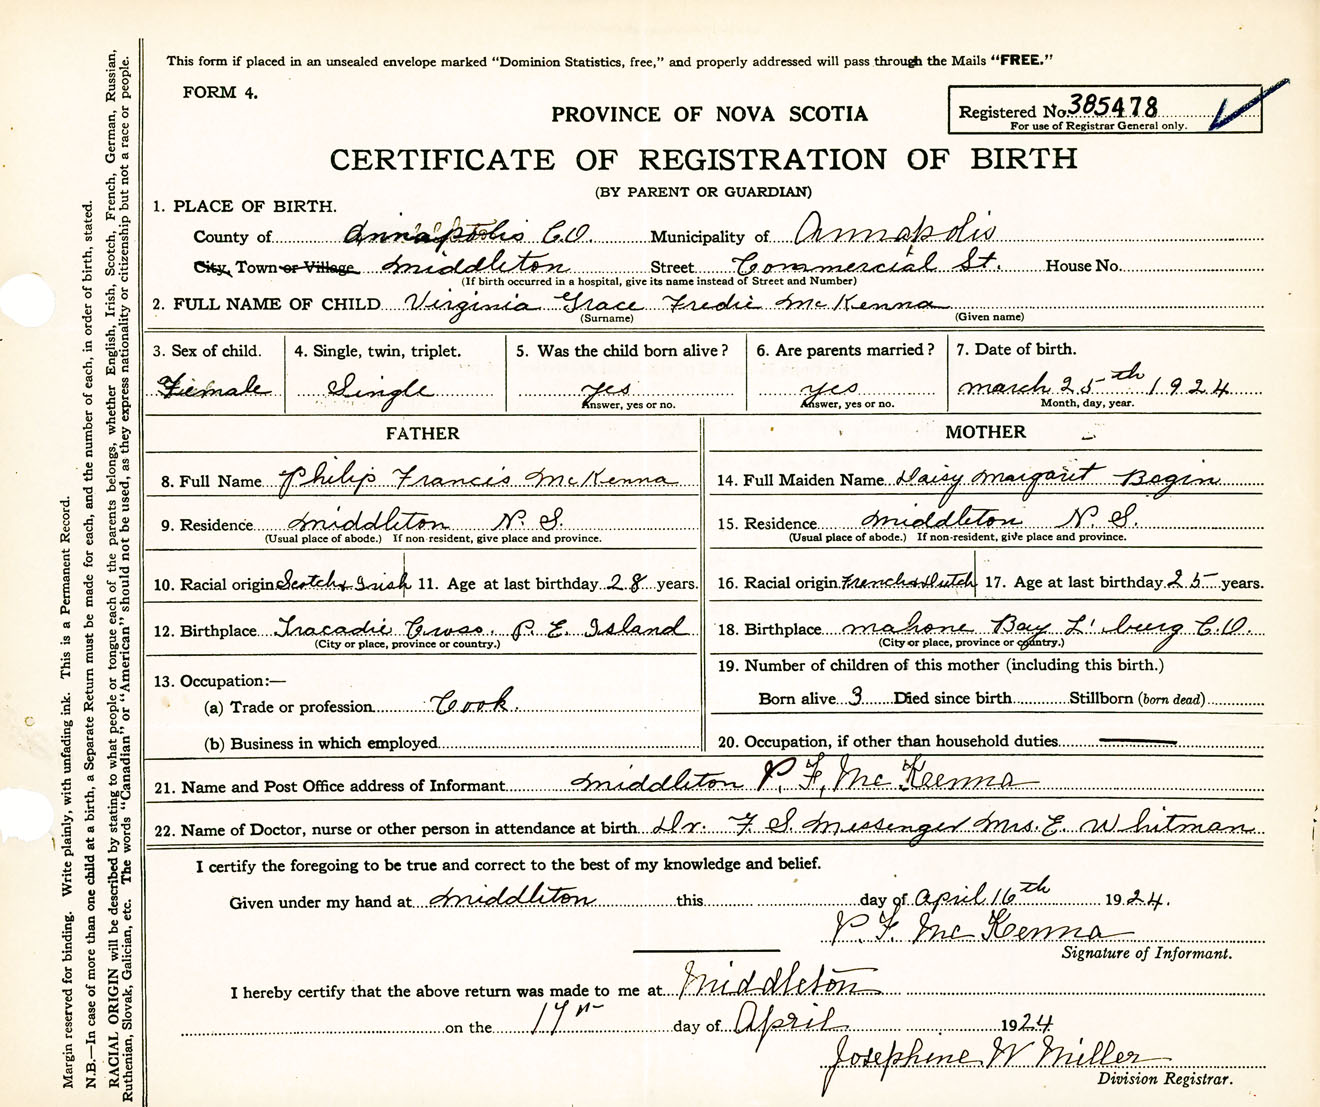 This form if placed in an unsealed envelope marked "Dominion Statistics, free," and properly addressed will pass through the Mails "FREE."
FORM 4.
PROVINCE OF NOVA SCOTIA
Registered No. 385478
For use of Registrar General only.
CERTIFICATE OF REGISTRATION OF BIRTH
(BY PARENT OR GUARDIAN)
1. PLACE OF BIRTH.
County of Annapolis C.O. Municipality of Annapolis
City, Town or Village Middleton Street Commercial St. House No.
(If birth occurred in a hospital, give its name instead of Street and Number)
2. FULL NAME OF CHILD Virginia Grace Fredie McKenna
(Surname) (Given name)
3. Sex of child. 4. Single, twin, triplet. 5. Was the child born alive? 6. Are parents married? 7. Date of birth.
Female Single yes yes march 25th 1924
Answer, yes or no. Answer, yes or no. Month, day, year.
FATHER MOTHER
8. Full Name Philip Francis McKenna 14. Full Maiden Name Daisy Margaret Begin
9. Residence Middleton N. S. 15. Residence Middleton N. S.
(Usual place of abode.) If non-resident, give place and province. (Usual place of abode.) If non-resident, give place and province.
10. Racial origin Scotch & Irish 11. Age at last birthday 28 years. 16. Racial origin French & Dutch 17. Age at last birthday 25 years.
12. Birthplace Tracadie Cross, P. E. Island 18. Birthplace Mahone Bay L'burg C.O.
(City or place, province or country.) (City or place, province or country.)
19. Number of children of this mother (including this birth.)
13. Occupation:—
(a) Trade or profession Cook. Born alive 3 Died since birth Stillborn (born dead)
(b) Business in which employed 20. Occupation, if other than household duties
21. Name and Post Office address of Informant Middleton P. F. McKenna
22. Name of Doctor, nurse or other person in attendance at birth Dr. F. S. Messenger Mrs. E. Whitman
I certify the foregoing to be true and correct to the best of my knowledge and belief.
Given under my hand at Middleton this day of April 16th 1924.
P. F. McKenna
Signature of Informant.
I hereby certify that the above return was made to me at Middleton
on the 17th day of April 1924
Josephine W Miller
Division Registrar.
Margin reserved for binding. Write plainly, with unfading ink. This is a Permanent Record.
N.B.—In case of more than one child at a birth, a Separate Return must be made for each, and the number of each, in order of birth, stated.
RACIAL ORIGIN will be described by stating to what people or tongue each of the parents belongs, whether English, Irish, Scotch, French, German, Russian,
Ruthenian, Slovak, Galician, etc. The words "Canadian" or "American" should not be used, as they express nationality or citizenship but not a race or people.